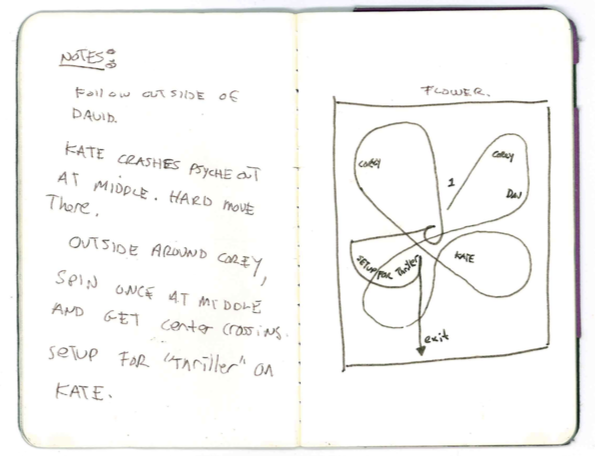 NOTES:
Follow OUTSIDE OF
DAVID.
KATE CRASHES PSYCHE OUT
AT MIDDLE. HARD MOVE
There.
OUTSIDE AROUND COREY,
SPIN ONCE AT MIDDLE
AND GET Center Crossing.
SETUP FOR "Thriller" ON
KATE.
FLOWER.
COREY
COREY
1
DAV
SETUP FOR Thriller
KATE
exit